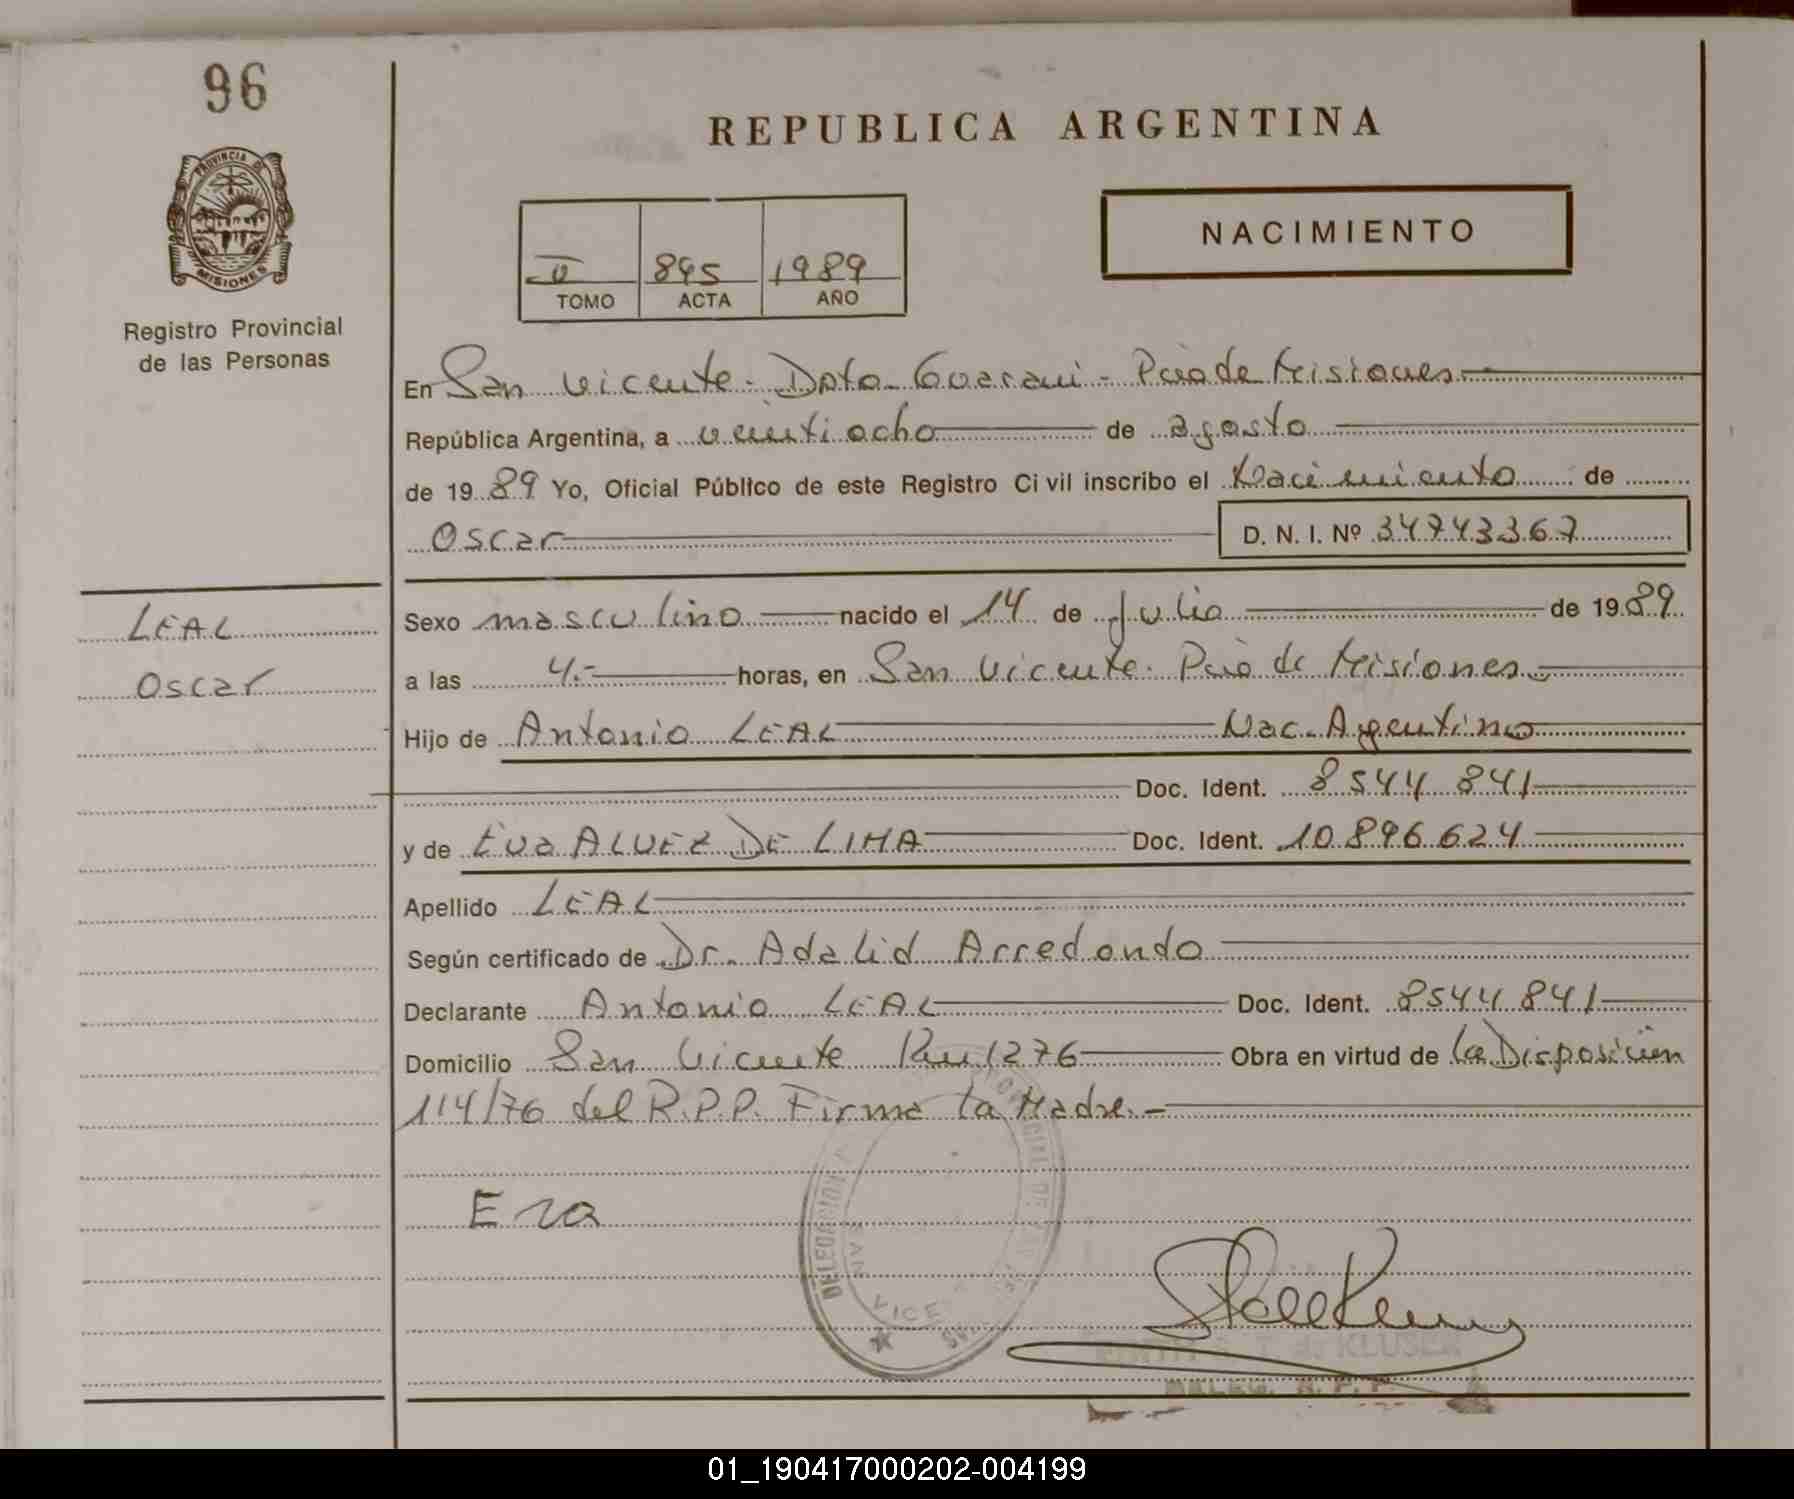 96
REPUBLICA ARGENTINA
PROVINCIA DE
MISIONES
Registro Provincial
de las Personas
NACIMIENTO
895 1989
TOMO ACTA AÑO
En San Vicente - Dpto Guarani - Pcia de Misiones
República Argentina, a veintiocho de agosto
de 19 89 Yo, Oficial Público de este Registro Civil inscribo el Nacimiento de
Oscar D. N. I. Nº 34743367
LEAL
Oscar
Sexo masculino nacido el 14 de Julio de 19 89
a las 4.- horas, en San Vicente - Pcia de Misiones
Hijo de Antonio LEAL Nac. Argentino
Doc. Ident. 8544 841
y de Eva ALVEZ DE LIMA Doc. Ident. 10.896.624
Apellido LEAL
Según certificado de Dr. Adalid Arredondo
Declarante Antonio LEAL Doc. Ident. 8544.841
Domicilio San Vicente Km 1276 Obra en virtud de la Disposición
114/76 del R.P.P. Firma la Madre.-
Eva
DELEGACION
SAN VICE
KLUSER
DELEG. R. P. P.
01_190417000202-004199